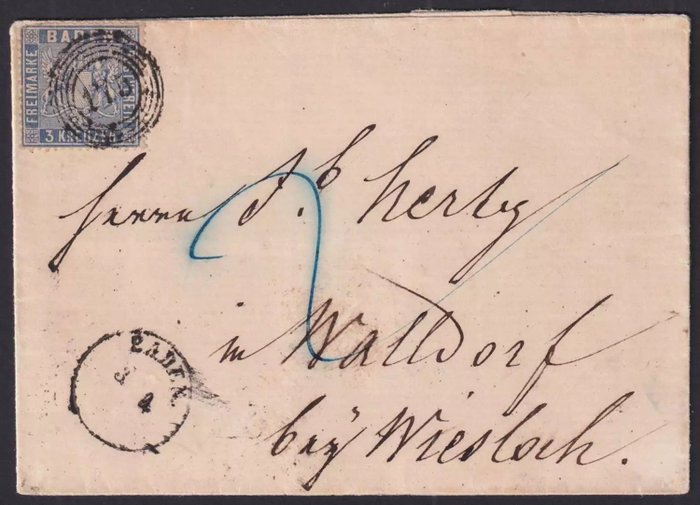 BADEN
FREIMARKE
3 KREUZER
175
Herrn J.b Hertz
in Walldorf
bey Wiesloch.
BADEN.
3
4